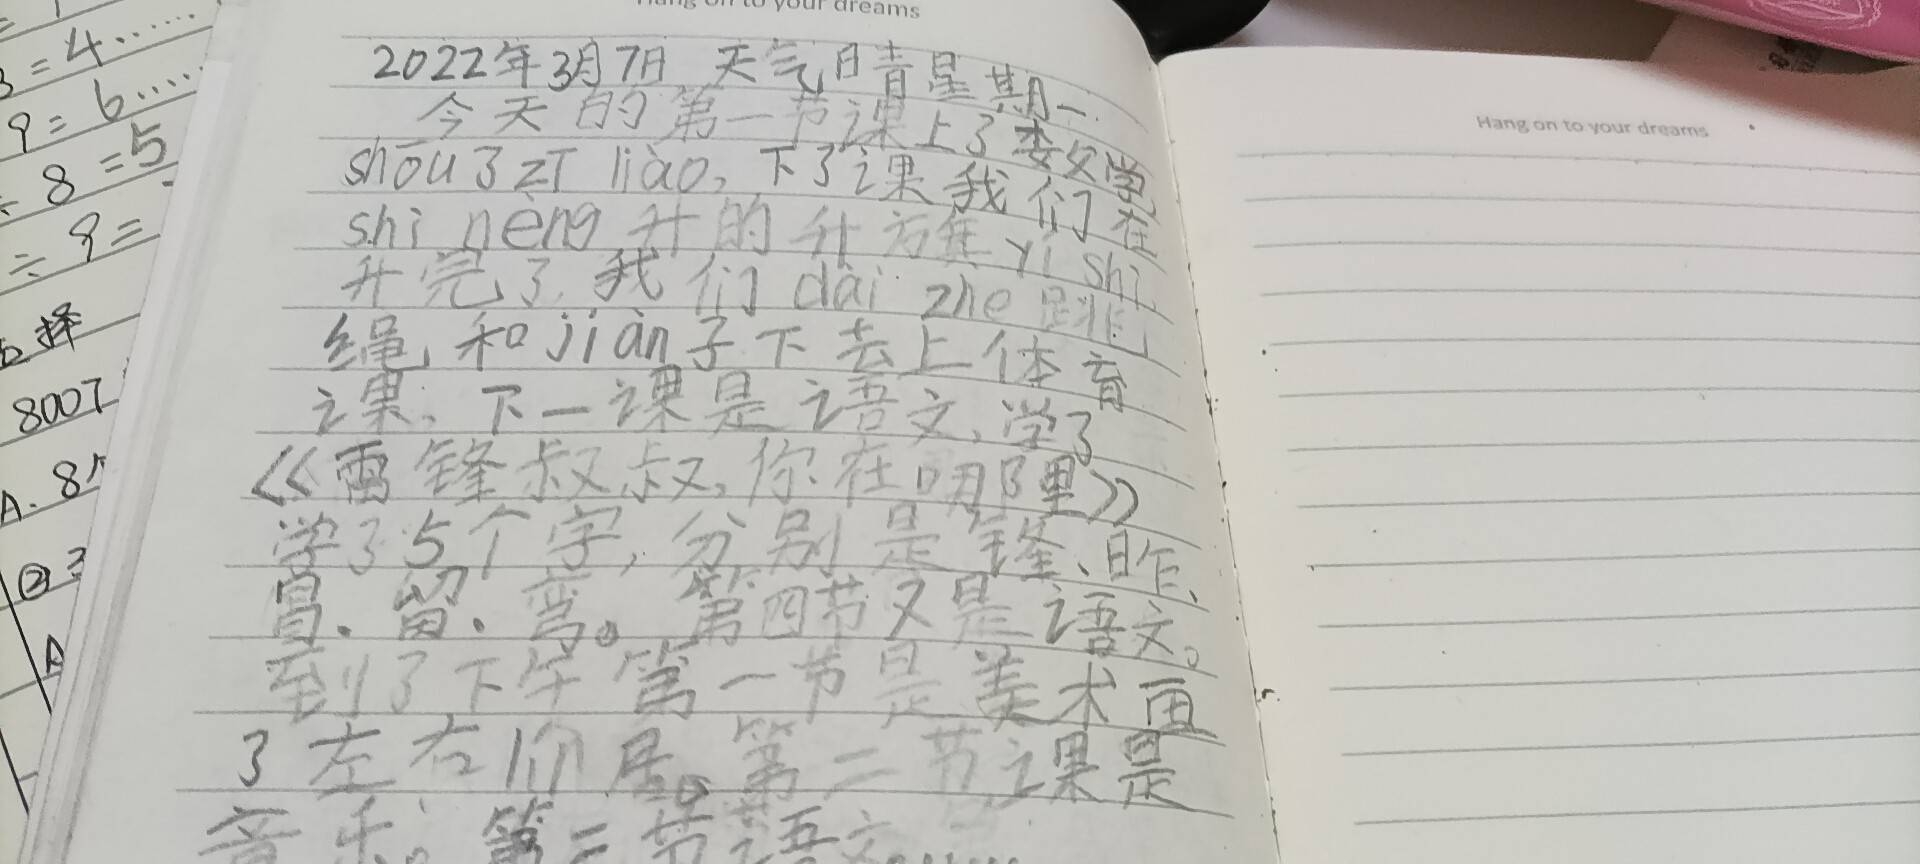 Hang on to your dreams
2022年3月7日 天气晴星期一
今天的第一节课上了数学
shōu了zī liào,下了课我们在
shì nèng升的升旗yí shì
升完了,我们dài zhe跳
绳,和jiàn子下去上体育
课。下一课是语文,学了
《雷锋叔叔,你在哪里》
学了5个字,分别是锋、昨、
冒.留.弯。第四节又是语文。
到了下午第一节是美术画
了左右邻居。第二节课是
音乐。第三节语文……
Hang on to your dreams
=4……
9=6……
8=5
÷9=
择
800T
A.8
②3
A